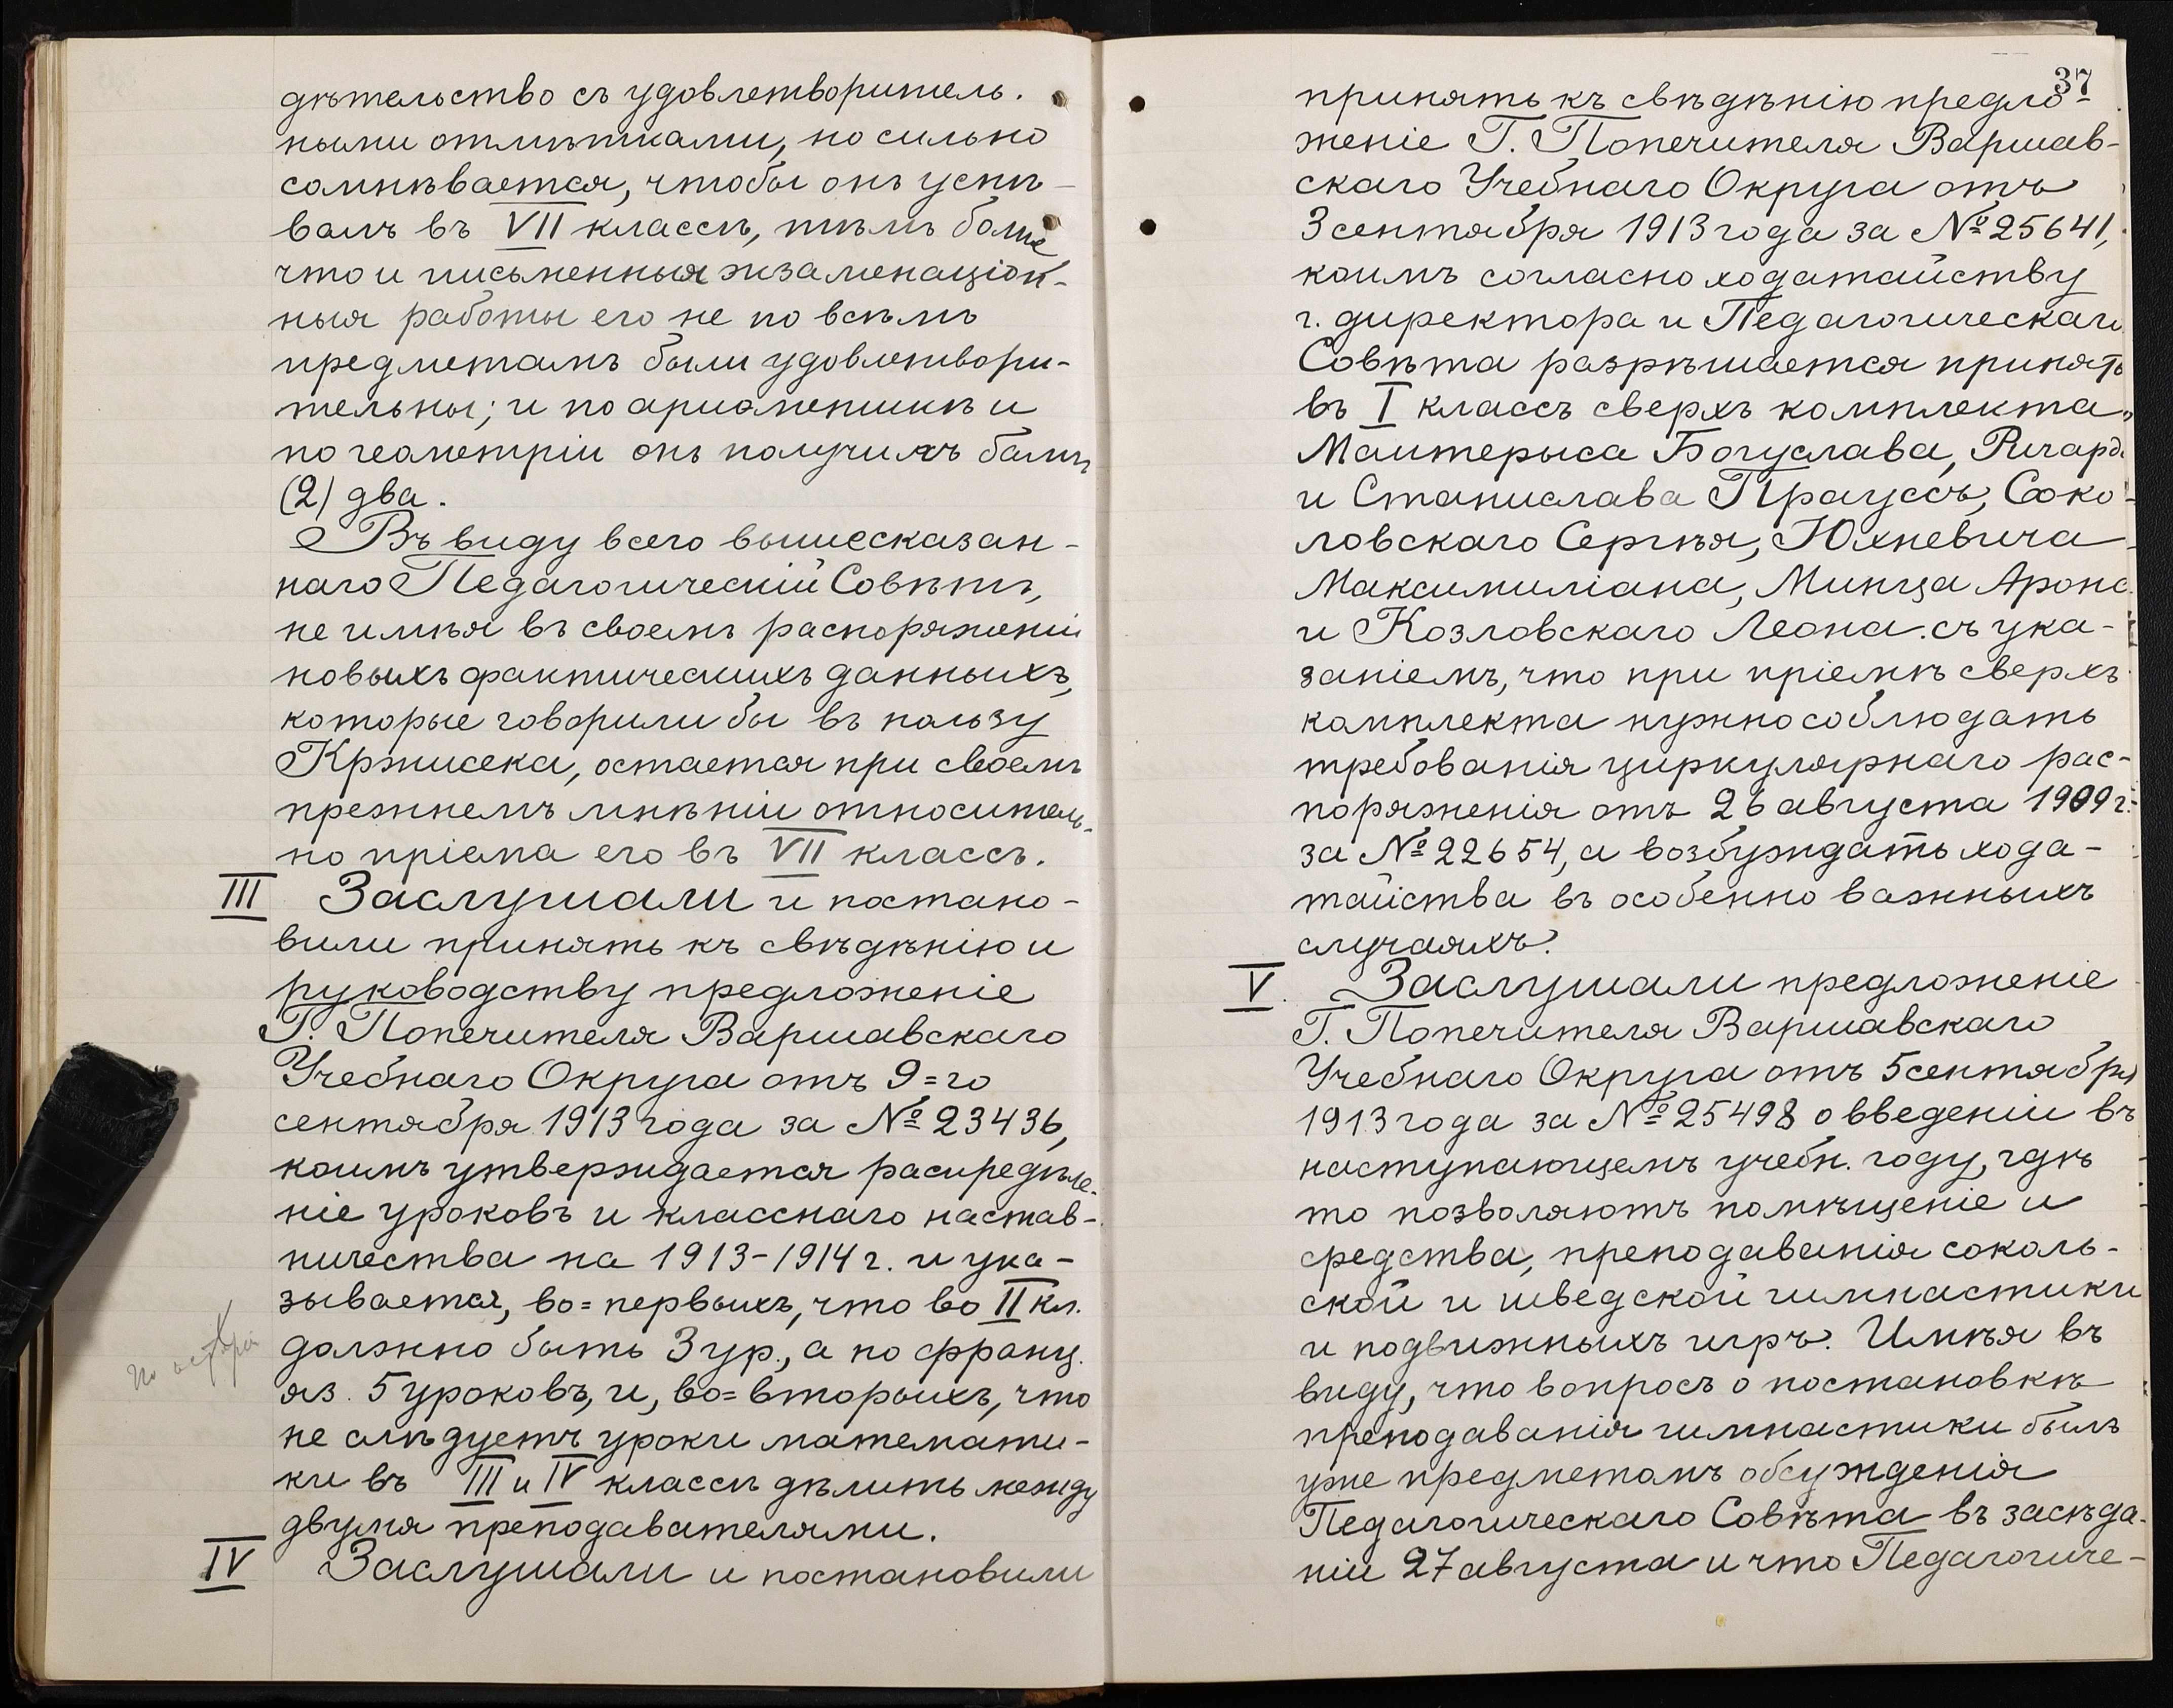 дѣтельство съ удовлетворитель-
ными отмѣтками, но сильно
сомнѣвается, чтобы онъ успѣ-
валъ въ VII классѣ, тѣмъ более
что и письменныя экзаменаціон-
ныя работы его не по всѣмъ
предметамъ были удовлетвори-
тельны; и по ариөметикѣ и
по геометріи онъ получилъ балъ
(2) два.
Въ виду всего вышесказан-
наго Педагогическій Совѣтъ,
не имѣя въ своемъ распоряженіи
новыхъ фактическихъ данныхъ,
которые говорили бы въ пользу
Кржисека, остается при своемъ
прежнемъ мнѣніи относитель-
но пріема его въ VII классъ.
III Заслушали и постано-
вили принять къ свѣдѣнію и
руководству предложеніе
Г. Попечителя Варшавскаго
Учебнаго Округа отъ 9=го
сентября 1913 года за № 23436,
коимъ утверждается распредѣле-
ніе уроковъ и класснаго настав-
ничества на 1913-1914 г. и ука-
зывается, во=первыхъ, что во II кл.
по исторіи
должно быть 3 ур., а по франц.
яз. 5 уроковъ, и, во=вторыхъ, что
не слѣдуетъ уроки математи-
ки въ III и IV классѣ дѣлить между
двумя преподавателями.
IV Заслушали и постановили
37
принять къ свѣдѣнію предло-
женіе Г. Попечителя Варшав-
скаго Учебнаго Округа отъ
3 сентября 1913 года за № 25641,
коимъ согласно ходатайству
г. директора и Педагогическаго
Совѣта разрѣшается принять
въ I классъ сверхъ комплекта
Маитерыса Богуслава, Ричарда
и Станислава Прауссъ, Соко-
ловскаго Сергѣя, Юхневича
Максимиліана, Минца Арона
и Козловскаго Леона съ ука-
заніемъ, что при пріемѣ сверхъ
комплекта нужно соблюдать
требованія циркулярнаго рас-
поряженія отъ 26 августа 1909 г.
за № 22654, а возбуждать хода-
тайства въ особенно важныхъ
случаяхъ.
V. Заслушали предложеніе
Г. Попечителя Варшавскаго
Учебнаго Округа отъ 5 сентября
1913 года за № 25498 о введеніи въ
наступающемъ учебн. году, гдѣ
то позволяютъ помѣщеніе и
средства, преподаванія соколь-
ской и шведской гимнастики
и подвижныхъ игръ. Имѣя въ
виду, что вопросъ о постановкѣ
преподаванія гимнастики былъ
уже предметомъ обсужденія
Педагогическаго Совѣта въ засѣда-
ніи 27 августа и что Педагогиче-